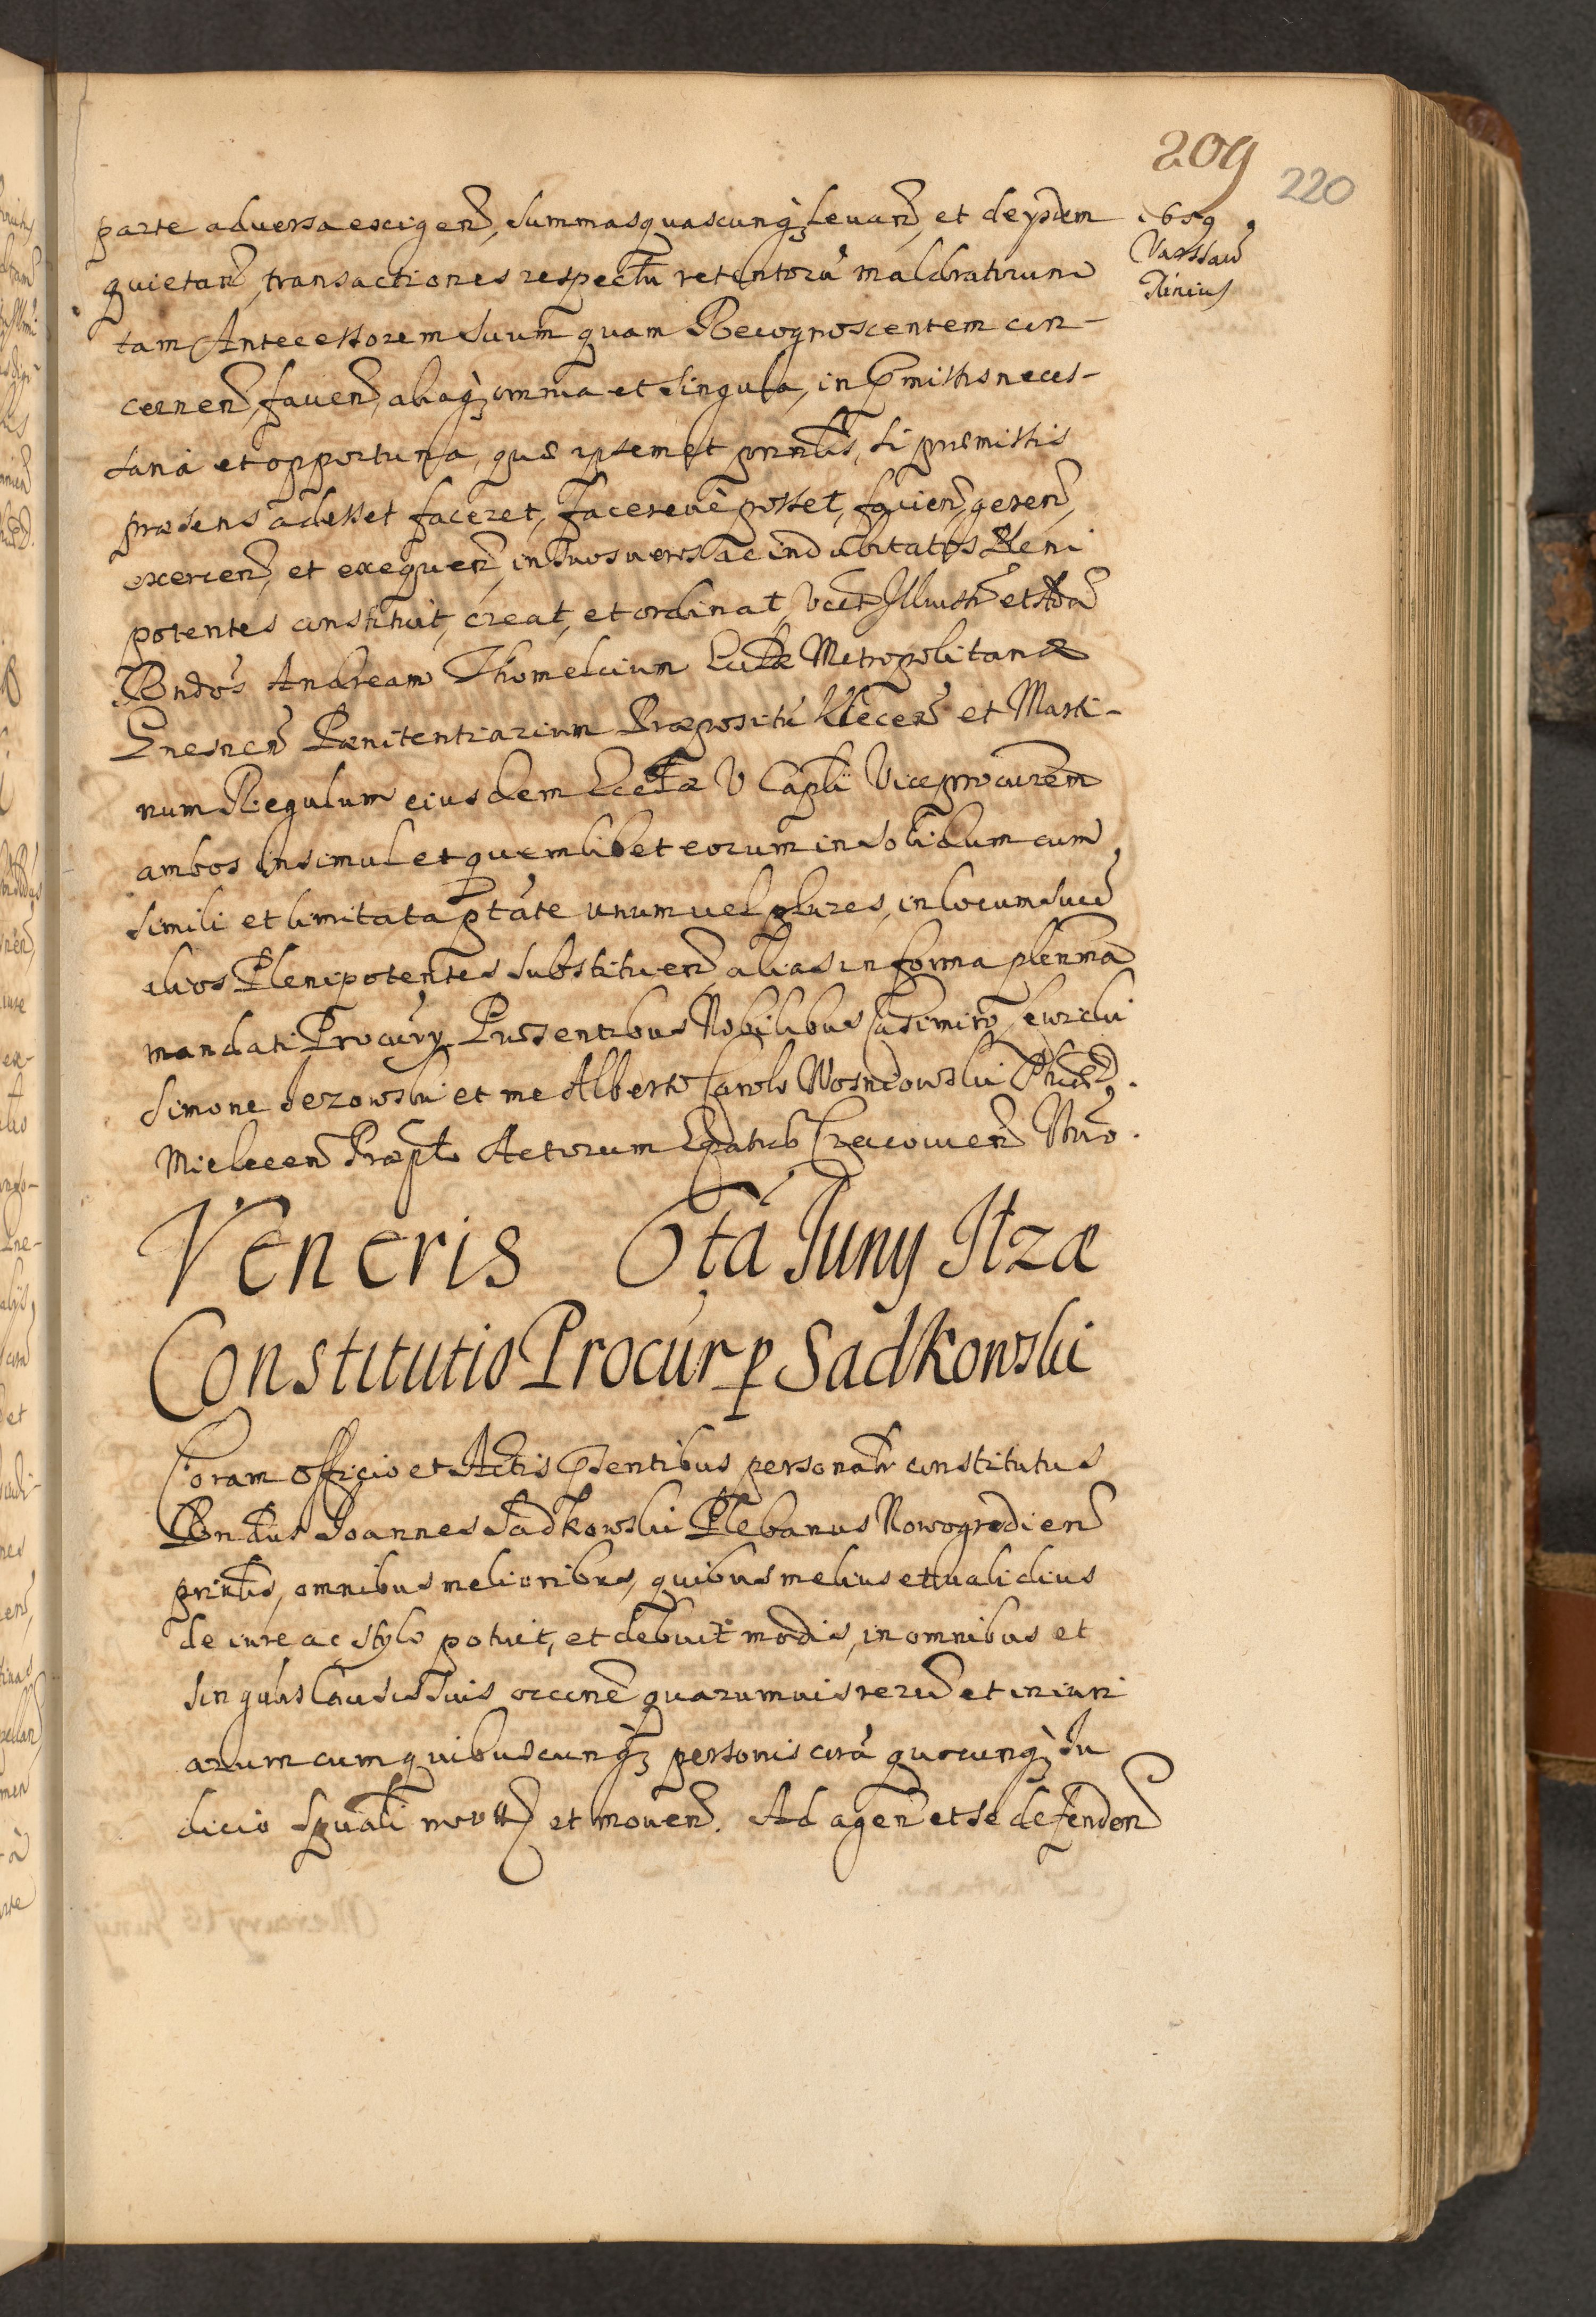 209
220
1659
Varssav
parte adversa exigen, summas quascunq; Levan, et de ysdem
quietan, transactiones respectu retentorũ maldratarum
tam Antecessorem suum quam Recognoscentem con-
cernen, facien, aliaq; omnia et singula, in pmissis neces-
saria et opportuna, quæ ipsemet prinlis, si præmissis
præsens adesset faceret, facereve posset, facien, geren,
exercen, et exequen, in suos veros ac indubitatos Pleni
potentes constituit, creat, et ordinat, Vcet Illustr et Adm
Rndos Andream Thomelcium Eccle Metropolitanæ
Gnesnen Pænitentiarium Præpositũ Klecen et Marti-
num Regulum eiusdem Eccliæ V Capli Viceprocurem
ambos insimul et quemlibet eorum in solidum cum
simili et limitata ptate unum vel plures, in locum sui
alios Plenipotentes substituen, alias in forma plenma
mandati Procury. Præsentibus Nobilibus Casimiro
Simone Jezowski et me Alberto Carolo Wosnidowski
Mielecen Præpto Actorum Epatus Cracovien Nrio.
Veneris 6ta Juny Itzæ
Constitutio Procur p Sadkowski
Coram Officio et Actis psentibus personalr constitutus
Rndus Joannes Sadkowski Plebanus Nowogrodien
prinlis, omnibus melioribus, quibus melius et validius
de iure ac stylo potuit, et debuit modis, in omnibus et
singulis Causis suis occne quarumvis rerũ et iniuri
arum cum quibuscunq; personis corã quocunq; Iu
dicio Spuali motis et moven. Ad agen et se defenden